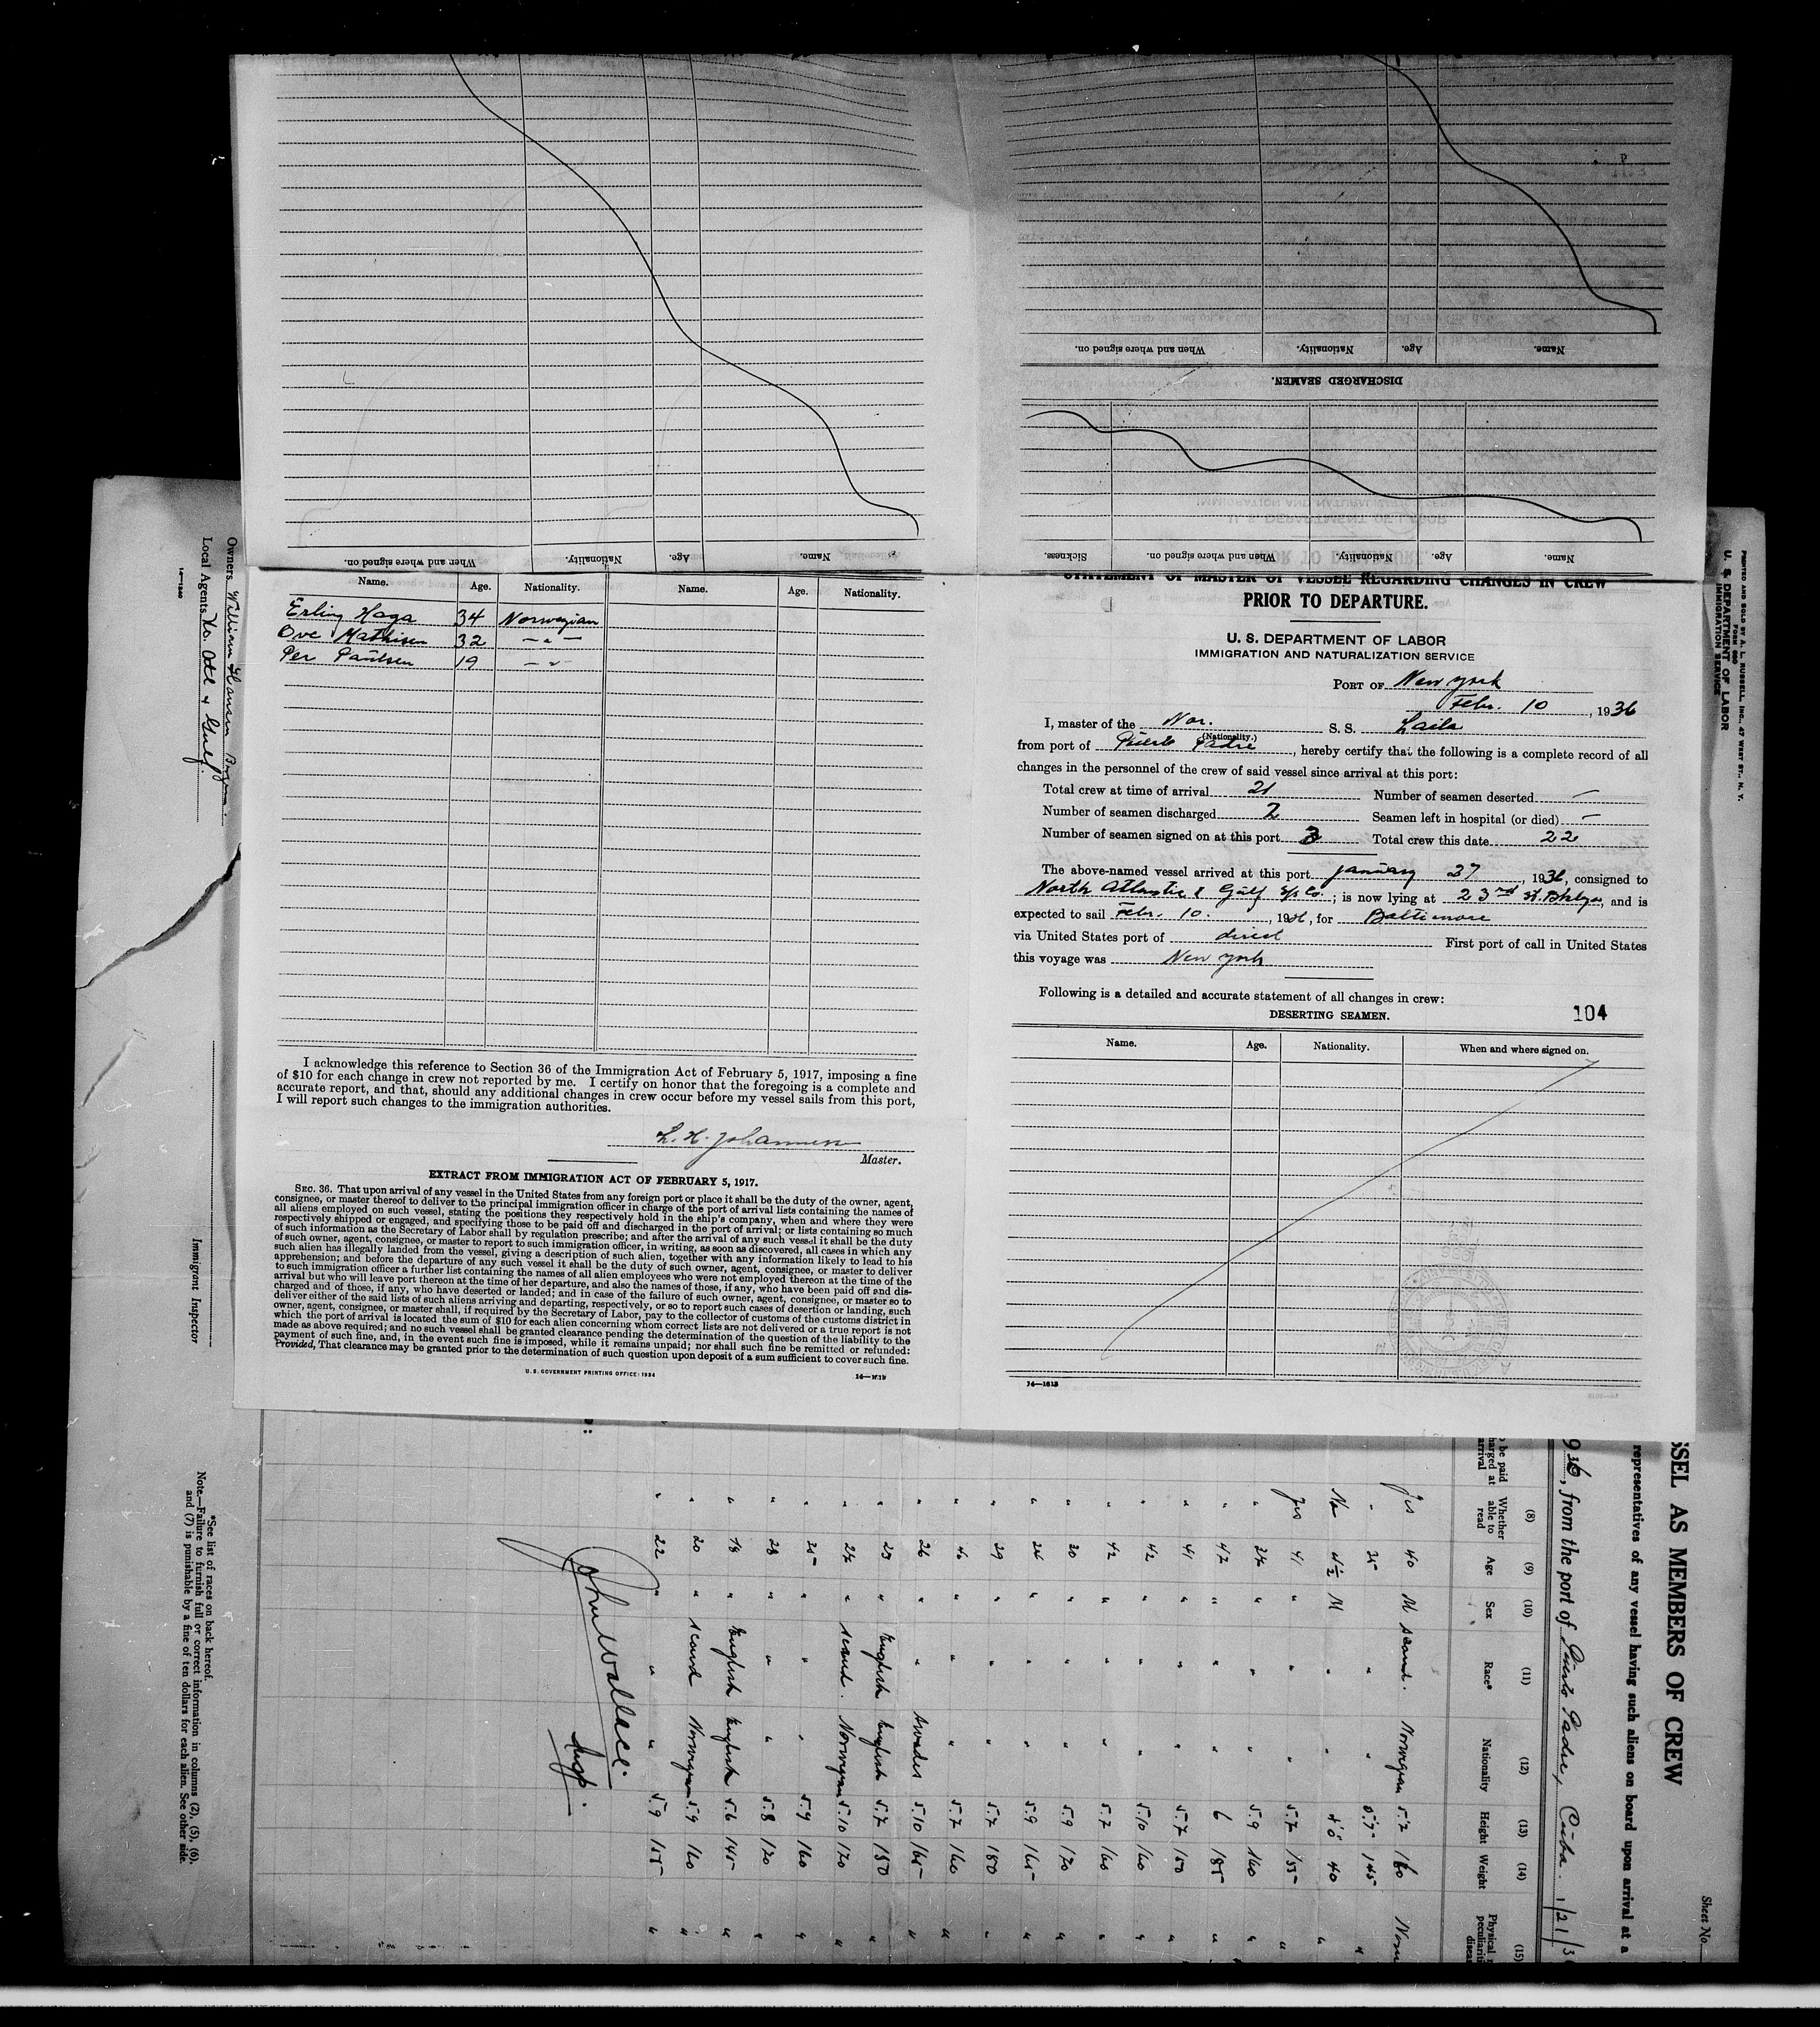 Name. Age. Nationality. When and where signed on.
Name. Age. Nationality. When and where signed on.
DISCHARGED SEAMEN.
Name. Age. Nationality. When and where signed on. Sickness.
Name. Age. Nationality. Name. Age. Nationality.
Erling Haga 34 Norwegian
Ove Mathisen 32 — " —
Per Paulsen 19 — " —
I acknowledge this reference to Section 36 of the Immigration Act of February 5, 1917, imposing a fine
of $10 for each change in crew not reported by me. I certify on honor that the foregoing is a complete and
accurate report, and that, should any additional changes in crew occur before my vessel sails from this port,
I will report such changes to the immigration authorities.
L. H. Johannessen
Master.
EXTRACT FROM IMMIGRATION ACT OF FEBRUARY 5, 1917.
SEC. 36. That upon arrival of any vessel in the United States from any foreign port or place it shall be the duty of the owner, agent,
consignee, or master thereof to deliver to the principal immigration officer in charge of the port of arrival lists containing the names of
all aliens employed on such vessel, stating the positions they respectively hold in the ship's company, when and where they were
respectively shipped or engaged, and specifying those to be paid off and discharged in the port of arrival; or lists containing so much
of such information as the Secretary of Labor shall by regulation prescribe; and after the arrival of any such vessel it shall be the duty
of such owner, agent, consignee, or master to report to such immigration officer, in writing, as soon as discovered, all cases in which any
such alien has illegally landed from the vessel, giving a description of such alien, together with any information likely to lead to his
apprehension; and before the departure of any such vessel it shall be the duty of such owner, agent, consignee, or master to deliver
to such immigration officer a further list containing the names of all alien employees who were not employed thereon at the time of the
arrival but who will leave port thereon at the time of her departure, and also the names of those, if any, who have been paid off and dis-
charged and of those, if any, who have deserted or landed; and in case of the failure of such owner, agent, consignee, or master so to
deliver either of the said lists of such aliens arriving and departing, respectively, or so to report such cases of desertion or landing, such
owner, agent, consignee, or master shall, if required by the Secretary of Labor, pay to the collector of customs of the customs district in
which the port of arrival is located the sum of $10 for each alien concerning whom correct lists are not delivered or a true report is not
made as above required; and no such vessel shall be granted clearance pending the determination of the question of the liability to the
payment of such fine, and, in the event such fine is imposed, while it remains unpaid; nor shall such fine be remitted or refunded:
Provided, That clearance may be granted prior to the determination of such question upon deposit of a sum sufficient to cover such fine.
U. S. GOVERNMENT PRINTING OFFICE: 1934 14—1613
STATEMENT OF MASTER OF VESSEL REGARDING CHANGES IN CREW
PRIOR TO DEPARTURE.
U. S. DEPARTMENT OF LABOR
IMMIGRATION AND NATURALIZATION SERVICE
PORT OF New York
Febr. 10, 1936
I, master of the Nor. S. S. Laila
(Nationality.)
from port of Puerto Padre, hereby certify that the following is a complete record of all
changes in the personnel of the crew of said vessel since arrival at this port:
Total crew at time of arrival 21 Number of seamen deserted —
Number of seamen discharged 2 Seamen left in hospital (or died) —
Number of seamen signed on at this port 3 Total crew this date 22
The above-named vessel arrived at this port January 27, 1936, consigned to
North Atlantic & Gulf S/S Co.; is now lying at 23rd st. Bklyn, and is
expected to sail Febr. 10., 1936, for Baltimore
via United States port of direct First port of call in United States
this voyage was New York
Following is a detailed and accurate statement of all changes in crew:
DESERTING SEAMEN.
104
Name. Age. Nationality. When and where signed on.
14—1613
PRINTED AND SOLD BY A. L. RUSSELL, INC., 47 WEST ST., N. Y.
FORM 680
U. S. DEPARTMENT OF LABOR
IMMIGRATION SERVICE
Sheet No.
SSEL AS MEMBERS OF CREW
representatives of any vessel having such aliens on board upon arrival at a
936, from the port of Puerto Padre, Cuba. 1/21/3
(8) (9) (10) (11) (12) (13) (14) (15)
Whether able to read Age Sex Race* Nationality Height Weight Physical
Yes 40 M Scand. Norwegian 5.7 160 None
" 35 " " 5.7 145 "
No 4½ M " " 40 "
Yes 41 " " " 5.7 155 "
" 47 " " " 6 185 "
" 41 " " " 5.7 150 "
" 42 " " " 5.10 160 "
" 42 " " " 5.7 160 "
" 30 " " " 5.9 170 "
" 26 " " " 5.9 165 "
" 29 " " " 5.7 180 "
" 40 " " " 5.7 160 "
" 26 " " Swedes 5.10 165 "
" 23 " English English 5.7 150 "
" 24 " Scand. Norwegian 5.10 170 "
" 25 " " " 5.9 160 "
" 28 " " " 5.8 170 "
" 18 " English English 5.6 145 "
" 20 " Scand Norwegian 5.9 160 "
" 22 " " " 5.9 155 "
John Wallace.
Insp.
Owners William Hansen Bergen
Local Agents No. Atl & Gulf
14—1240
Immigrant Inspector
*See list of races on back hereof.
Note.—Failure to furnish full or correct information in columns (2), (5), (6),
and (7) is punishable by a fine of ten dollars for each alien. See other side.